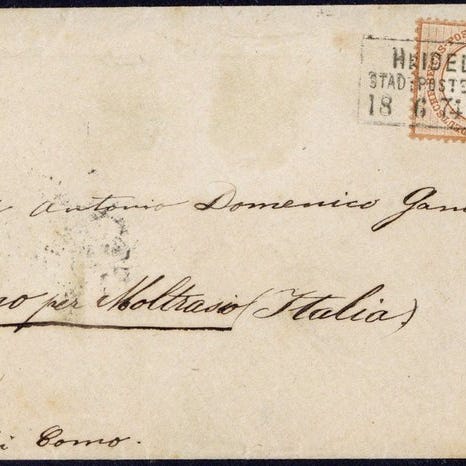 HEIDEL
STADTPOSTE
18 6 74
Antonio Domenico Gan
per Moltrasio (Italia)
di Como.